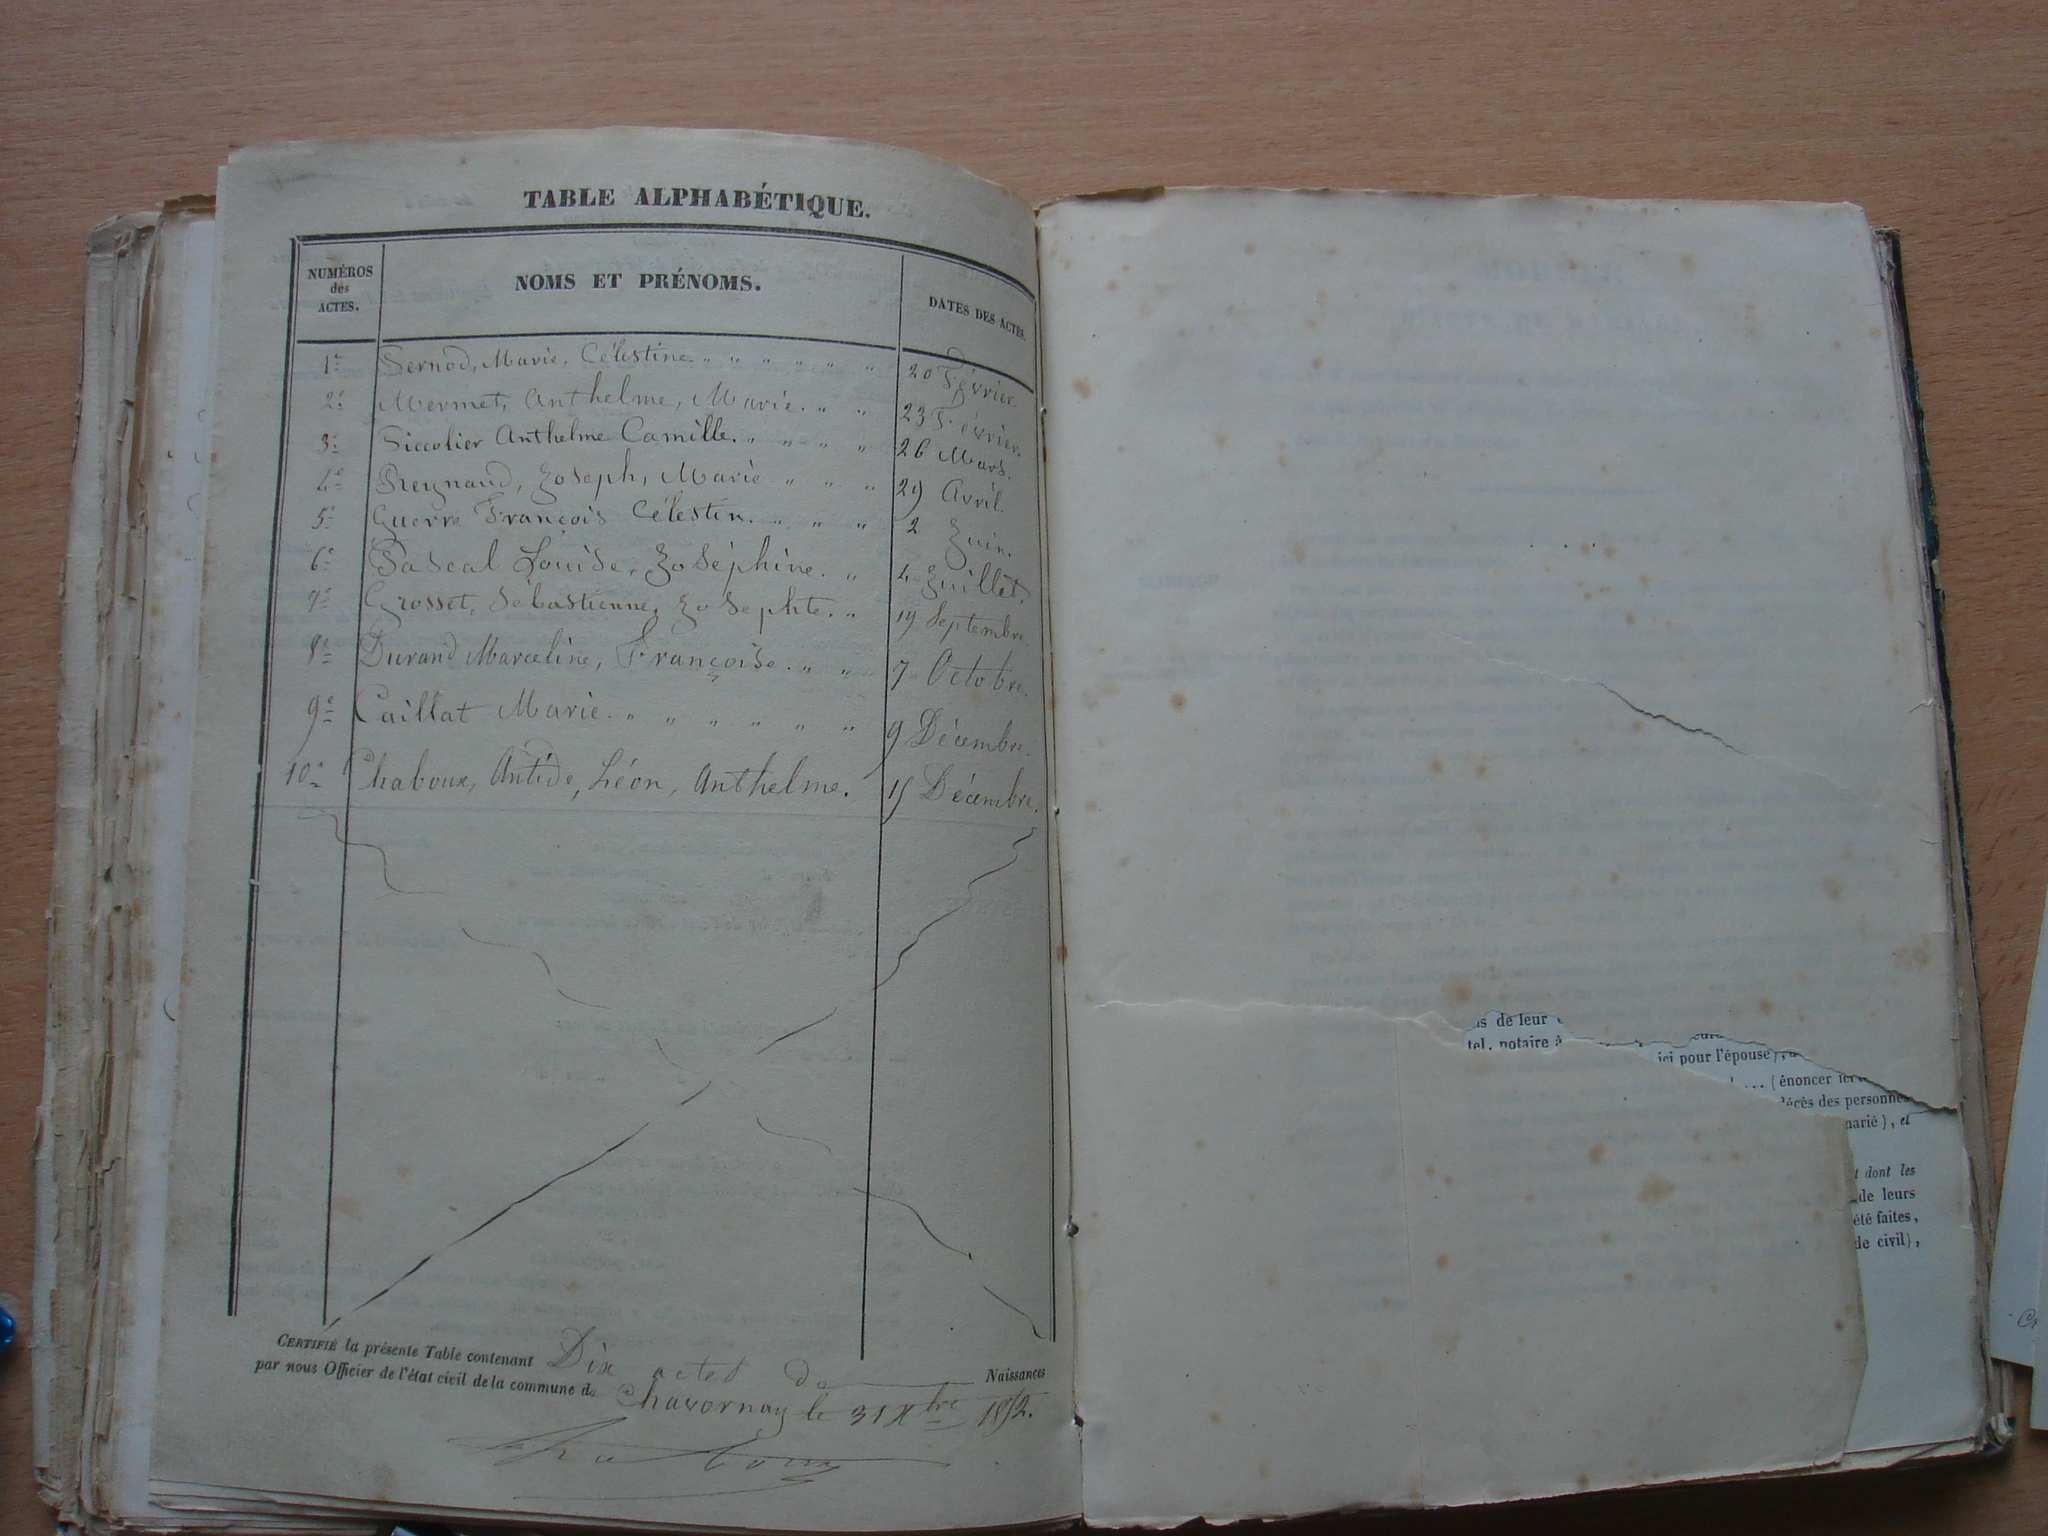 TABLE ALPHABÉTIQUE.
NUMÉROS des ACTES. NOMS ET PRÉNOMS. DATES DES ACTES.
1e Sernod, Marie, Célestine. " " " " " " 20 Février.
2e Mermet, Anthelme, Marie. " " 23 Février.
3e Siccolier Anthelme Camille. " " " " 26 Mars.
4e Reynaud, Joseph, Marie " " " 29 Avril.
5e Guerre François Célestin. " " " 2 Juin.
6e Pascal Louise, Joséphine. " 4 Juillet.
7e Grosset, Sébastienne, Josephte. " 19 Septembre.
8e Durand Marceline, Françoise. " " 7 Octobre.
9e Caillat Marie. " " " " " " 9 Décembre.
10e Chaboux, Antide, Léon, Anthelme. 15 Décembre.
CERTIFIÉ la présente Table contenant Dix actes de Naissances
par nous Officier de l'état civil de la commune de Chavornay le 31 Xbre 1852.
Chaboux
de leur
tel, notaire à
ici pour l'épouse),
... (énoncer ici
décès des personnes
marié), et
dont les
de leurs
été faites,
de civil),